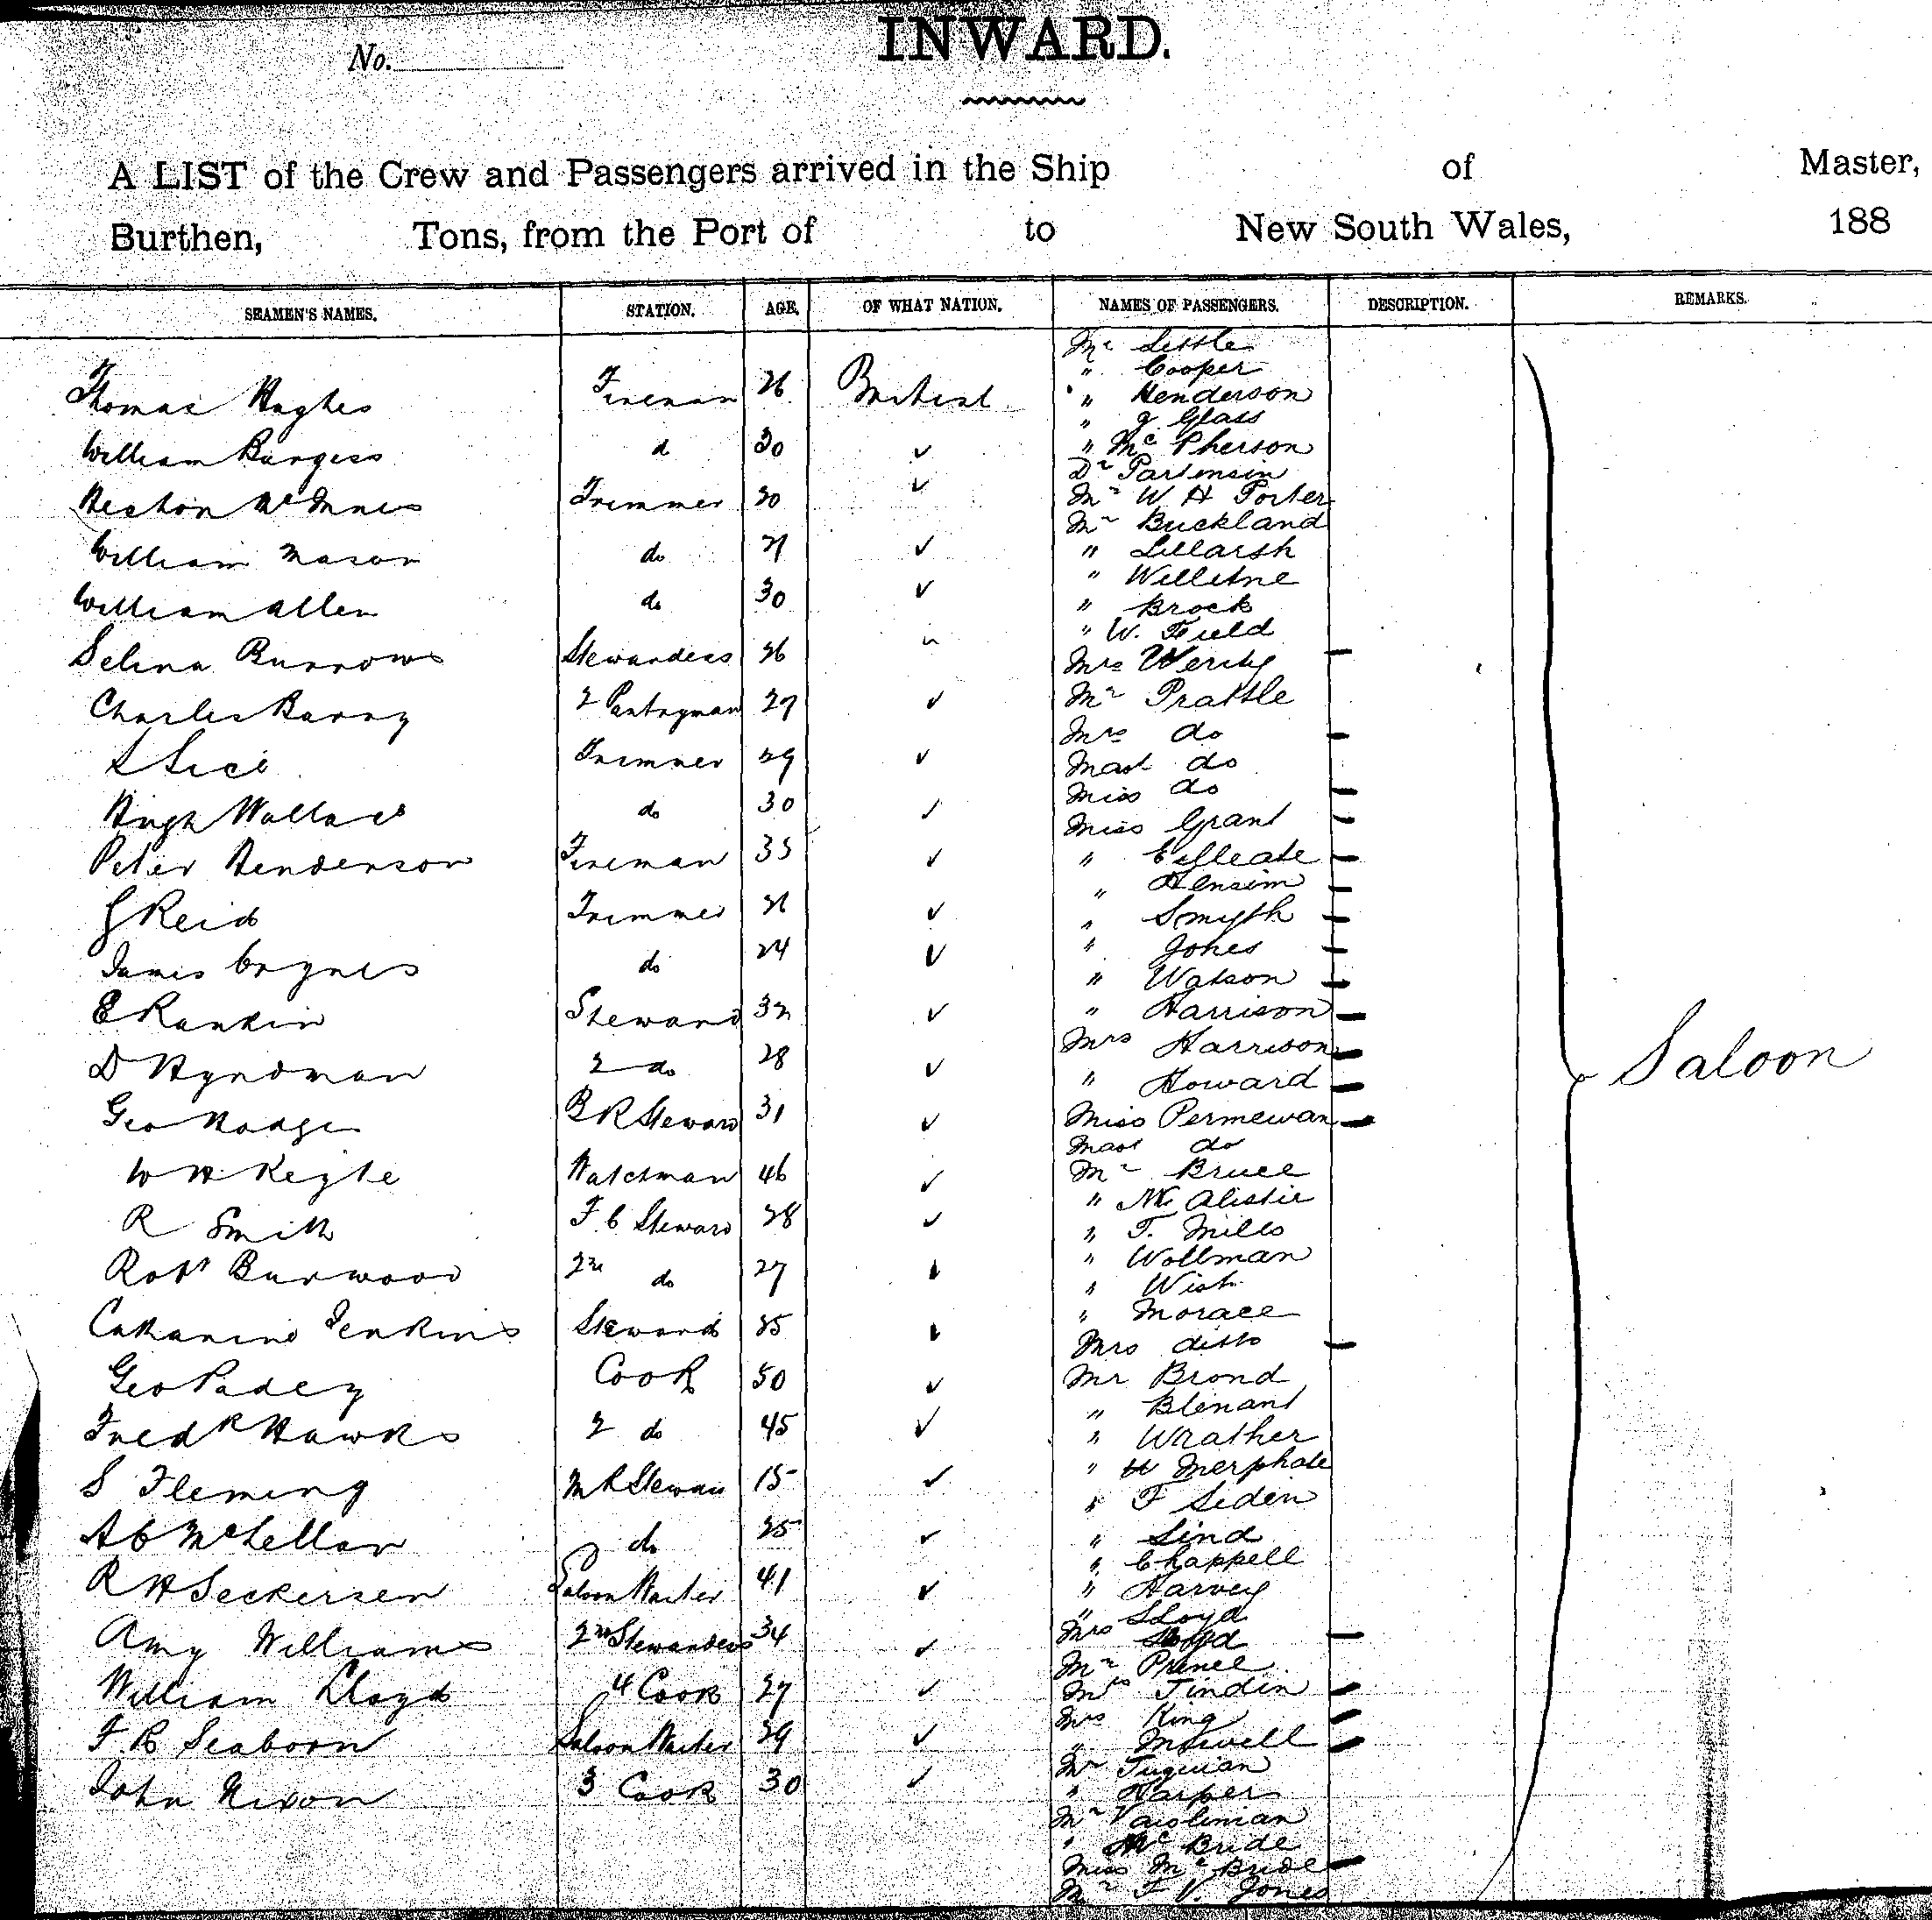 INWARD.
No.
A LIST of the Crew and Passengers arrived in the Ship of Master,
Burthen, Tons, from the Port of to New South Wales, 188
SEAMEN'S NAMES. STATION. AGE. OF WHAT NATION. NAMES OF PASSENGERS. DESCRIPTION. REMARKS.
Thomas Hughes Fireman 26 British
William Burgess d 30 ✓
Heston McInnes Trimmer 20 ✓
William Mason do 21 ✓
William Allen do 30 ✓
Selina Burrows Stewardess 26
Charles Barry 2 Pantryman 27 ✓
Trimmer 29 ✓
Hugh Wallace do 30 ✓
Peter Henderson Fireman 35 ✓
G Reid Trimmer 21 ✓
James do 24 ✓
E Rankin Steward 32 ✓
D Hyndman 2 do 28 ✓
Geo Hodge B R Steward 31 ✓
W H Watchman 46 ✓
R Smith F. C Steward 28 ✓
Robt Burwood 2nd do 27
Catharine Jenkins Steward 35
Geo Padey Cook 50 ✓
Fredk Hawks 2 do 45 ✓
S Fleming M R Steward 15 ✓
A C McLellan do 25 ✓
R H Seckersen Saloon Waiter 41 ✓
Amy Williams 2nd Stewardess 34 ✓
William Lloyd 4 Cook 27 ✓
F. R Seaborn Saloon Waiter 29 ✓
John Nixon 3 Cook 30 ✓
Mr Little
" Cooper
" Henderson
" G Glass
" McPherson
Dr
Mr W H Porter
Mr Buckland
"
"
" Brock
" W. Field
Mrs Werity
Mr Prattle
Mrs do
Mast do
Miss do
Miss Grant
"
" Hensim
" Smyth
" Jones
" Watson
" Harrison
Mrs Harrison
" Howard
Miss Permewan
Mast do
Mr Bruce
" McAlistie
" T. Mills
" Wollman
" Wish
" Morace
Mrs ditto
Mr Brond
" Blenant
" Wrather
"
" F Seden
" Lind
" Chappell
" Harvey
" Lloyd
Mrs Lloyd
Mr Prince
Mrs Tindin
Mrs King
"
Mr
" Harper
Mr
" McBride
Miss McBride
Mr F V. Jones
Saloon